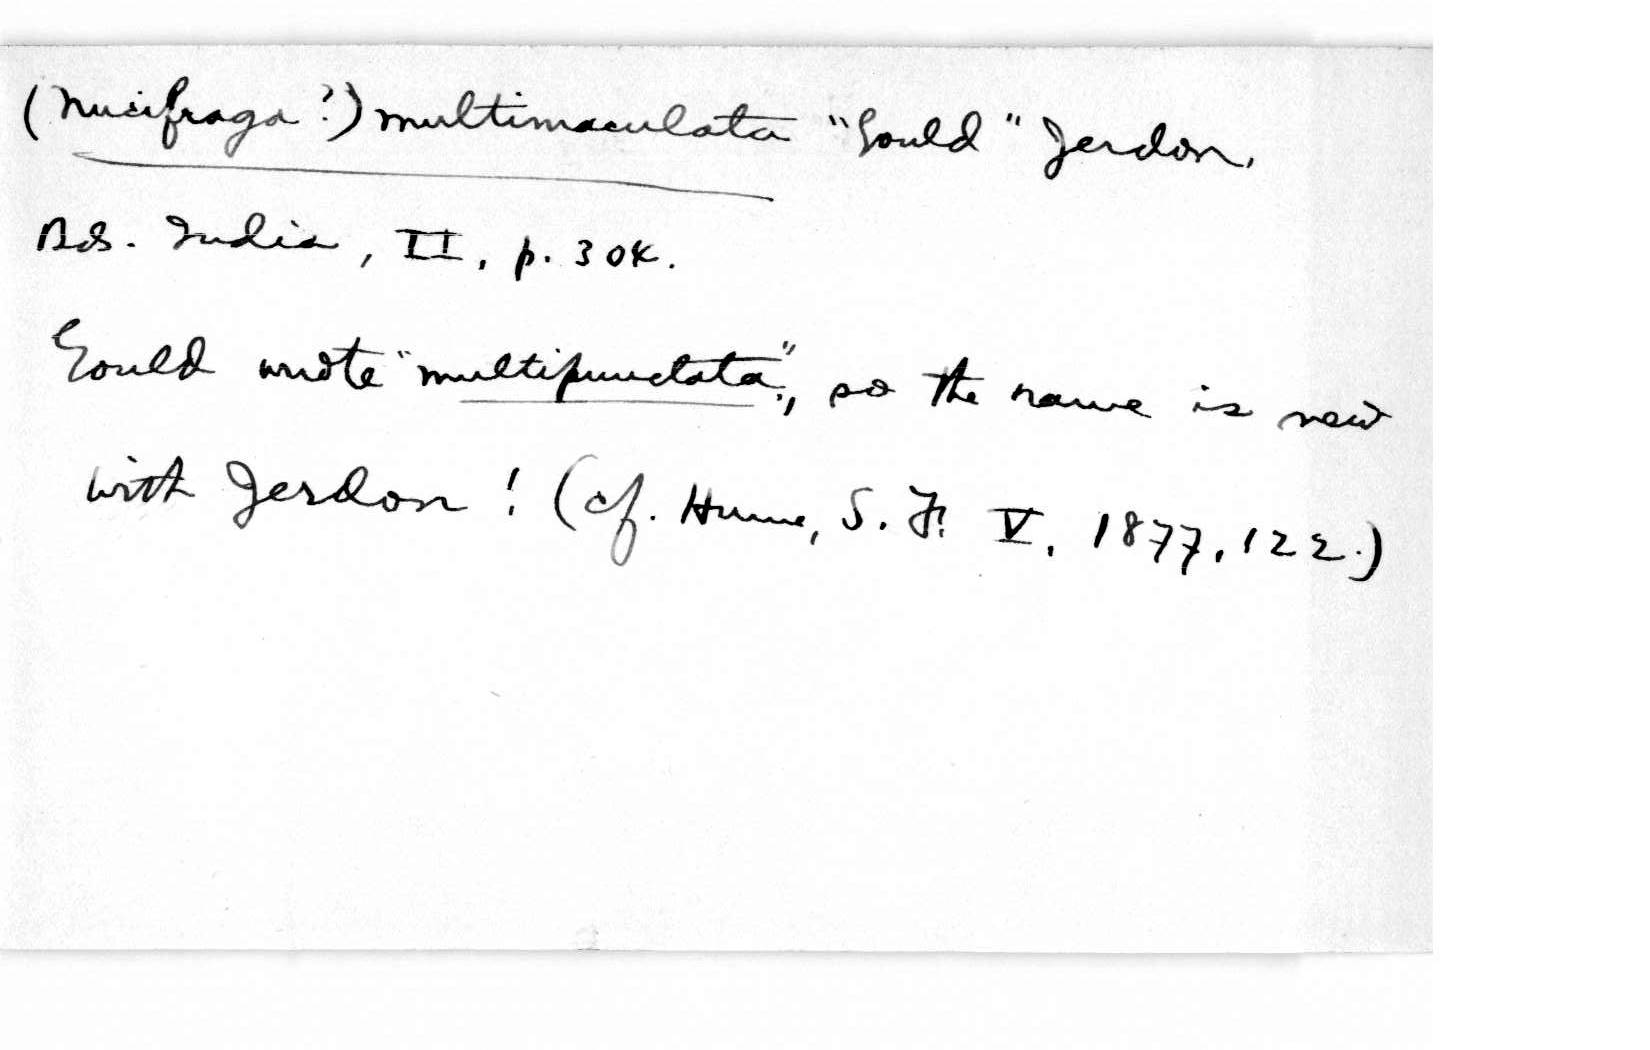 (Nucifraga?) multimaculata "Gould" Jerdon,
Bds. India, II, p. 304.
Gould wrote "multipunctata", so the name is new
with Jerdon! (cf. Hume, S. F. V, 1877, 122.)